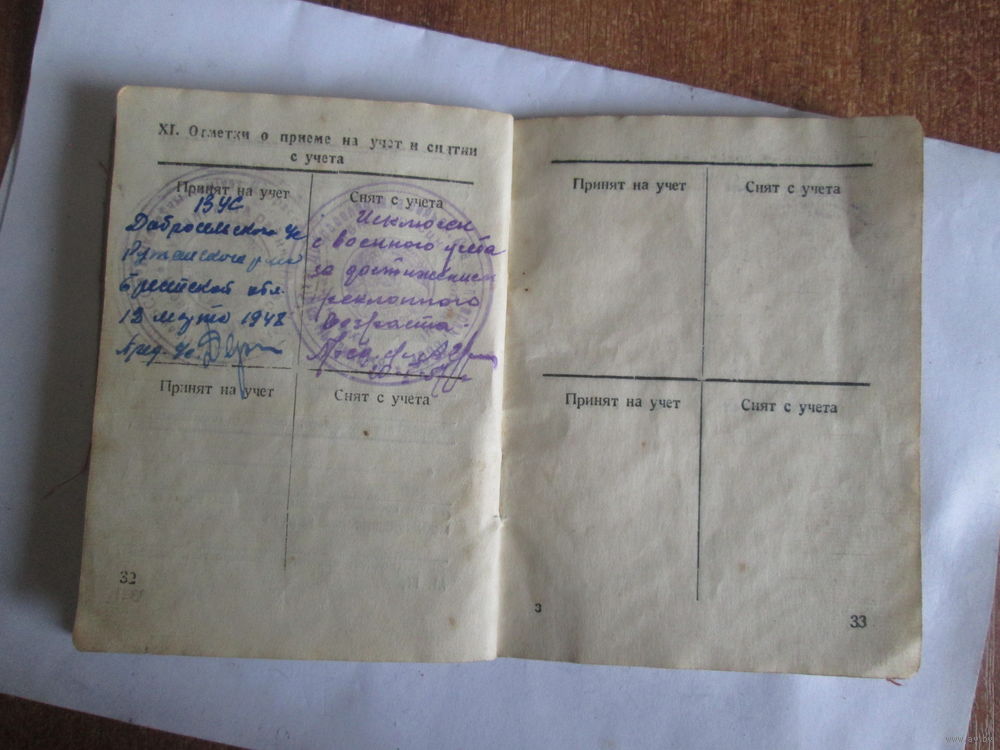 XI. Отметки о приеме на учет и снятии
с учета
Принят на учет
ВУС
Ружанского р-на
Брестской обл.
12 марта 1948
Пред. Ус.
Снят с учета
Исключен
с военного учета
за достижением
преклонного
возраста.
Принят на учет
Снят с учета
32
Принят на учет
Снят с учета
Принят на учет
Снят с учета
3
33
www.ay.by